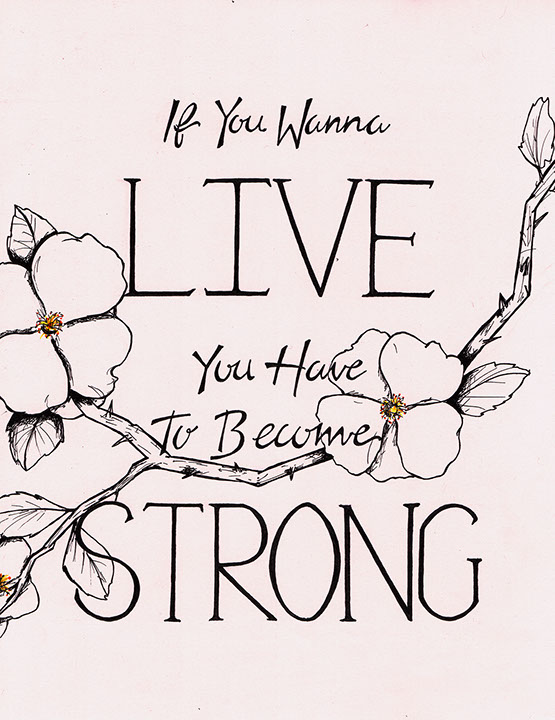 If You Wanna
LIVE
You Have
To Become
STRONG